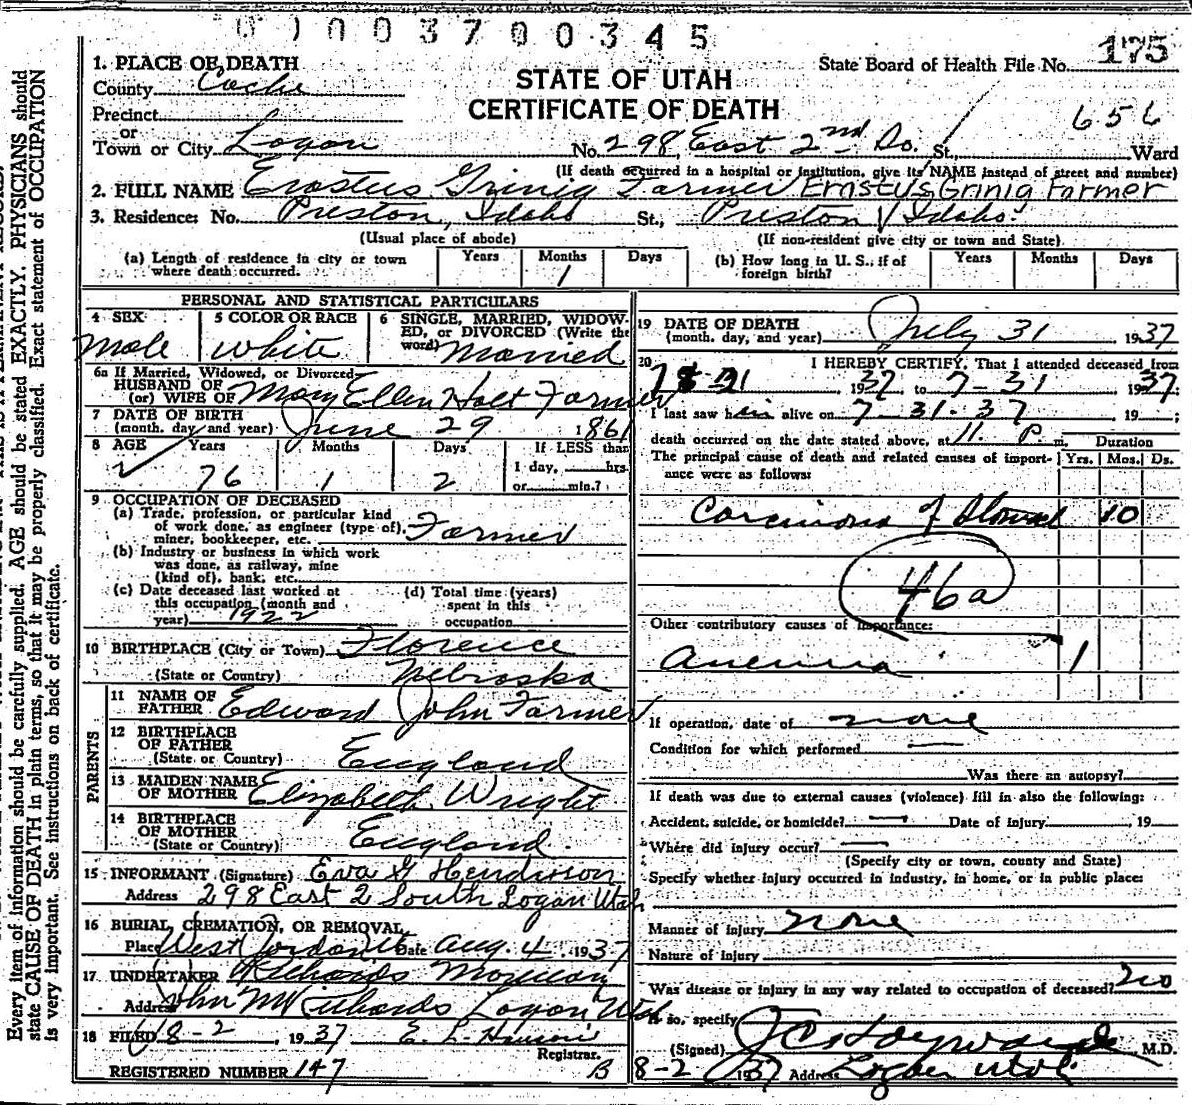 0 0 0 3 7 0 0 3 4 5
STATE OF UTAH
CERTIFICATE OF DEATH
State Board of Health File No. 175
656
1. PLACE OF DEATH
County Cache
Precinct
or
Town or City Logan No. 298 East 2nd So. St., Ward
(If death occurred in a hospital or institution, give its NAME instead of street and number)
2. FULL NAME Erastus Grinig Farmer Erastus Grinig Farmer
3. Residence: No. Preston, Idaho St., Preston Idaho
(Usual place of abode) (If non-resident give city or town and State)
(a) Length of residence in city or town where death occurred. Years Months 1 Days
(b) How long in U. S., if of foreign birth? Years Months Days
PERSONAL AND STATISTICAL PARTICULARS
4 SEX Male
5 COLOR OR RACE White
6 SINGLE, MARRIED, WIDOWED, or DIVORCED (Write the word) Married
6a If Married, Widowed, or Divorced
HUSBAND OF
(or) WIFE OF Mary Ellen Holt Farmer
7 DATE OF BIRTH
(month, day and year) June 29 1861
8 AGE Years 76 Months 1 Days 2 If LESS than
1 day, hrs.
or min.?
9 OCCUPATION OF DECEASED
(a) Trade, profession, or particular kind
of work done, as engineer (type of),
miner, bookkeeper, etc. Farmer
(b) Industry or business in which work
was done, as railway, mine
(kind of), bank, etc.
(c) Date deceased last worked at
this occupation (month and
year) 1922
(d) Total time (years)
spent in this
occupation
10 BIRTHPLACE (City or Town) Florence
(State or Country) Nebraska
PARENTS
11 NAME OF
FATHER Edward John Farmer
12 BIRTHPLACE
OF FATHER
(State or Country) England
13 MAIDEN NAME
OF MOTHER Elizabeth Wright
14 BIRTHPLACE
OF MOTHER
(State or Country) England
15 INFORMANT (Signature) Eva G Henderson
Address 298 East 2 South Logan Utah
16 BURIAL, CREMATION, OR REMOVAL
Place West Jordan Ut Date Aug. 4 1937
17 UNDERTAKER Richards Mortuary
Address John M Richards Logan Utah
18 FILED 8-2, 1937 E. L. Hanson
Registrar.
REGISTERED NUMBER 147 B
19 DATE OF DEATH
(month, day, and year) July 31 1937
20 I HEREBY CERTIFY, That I attended deceased from
1937 to 7-31 1937;
I last saw him alive on 7-31-37 19 ;
death occurred on the date stated above, at 11 P m. Duration
The principal cause of death and related causes of importance were as follows: Yrs. Mos. Ds.
Carcinoma of Stomach 10
46a
Other contributory causes of importance:
Anemia 1
If operation, date of none
Condition for which performed —
Was there an autopsy?
If death was due to external causes (violence) fill in also the following:
Accident, suicide, or homicide? — Date of injury 19
Where did injury occur? —
(Specify city or town, county and State)
Specify whether injury occurred in industry, in home, or in public place:
Manner of injury none
Nature of injury
Was disease or injury in any way related to occupation of deceased? no
If so, specify
(Signed) J C Hayward M.D.
8-2 1937 Address Logan Utah
Every item of information should be carefully supplied. AGE should be stated EXACTLY. PHYSICIANS should
state CAUSE OF DEATH in plain terms, so that it may be properly classified. Exact statement of OCCUPATION
is very important. See instructions on back of certificate.